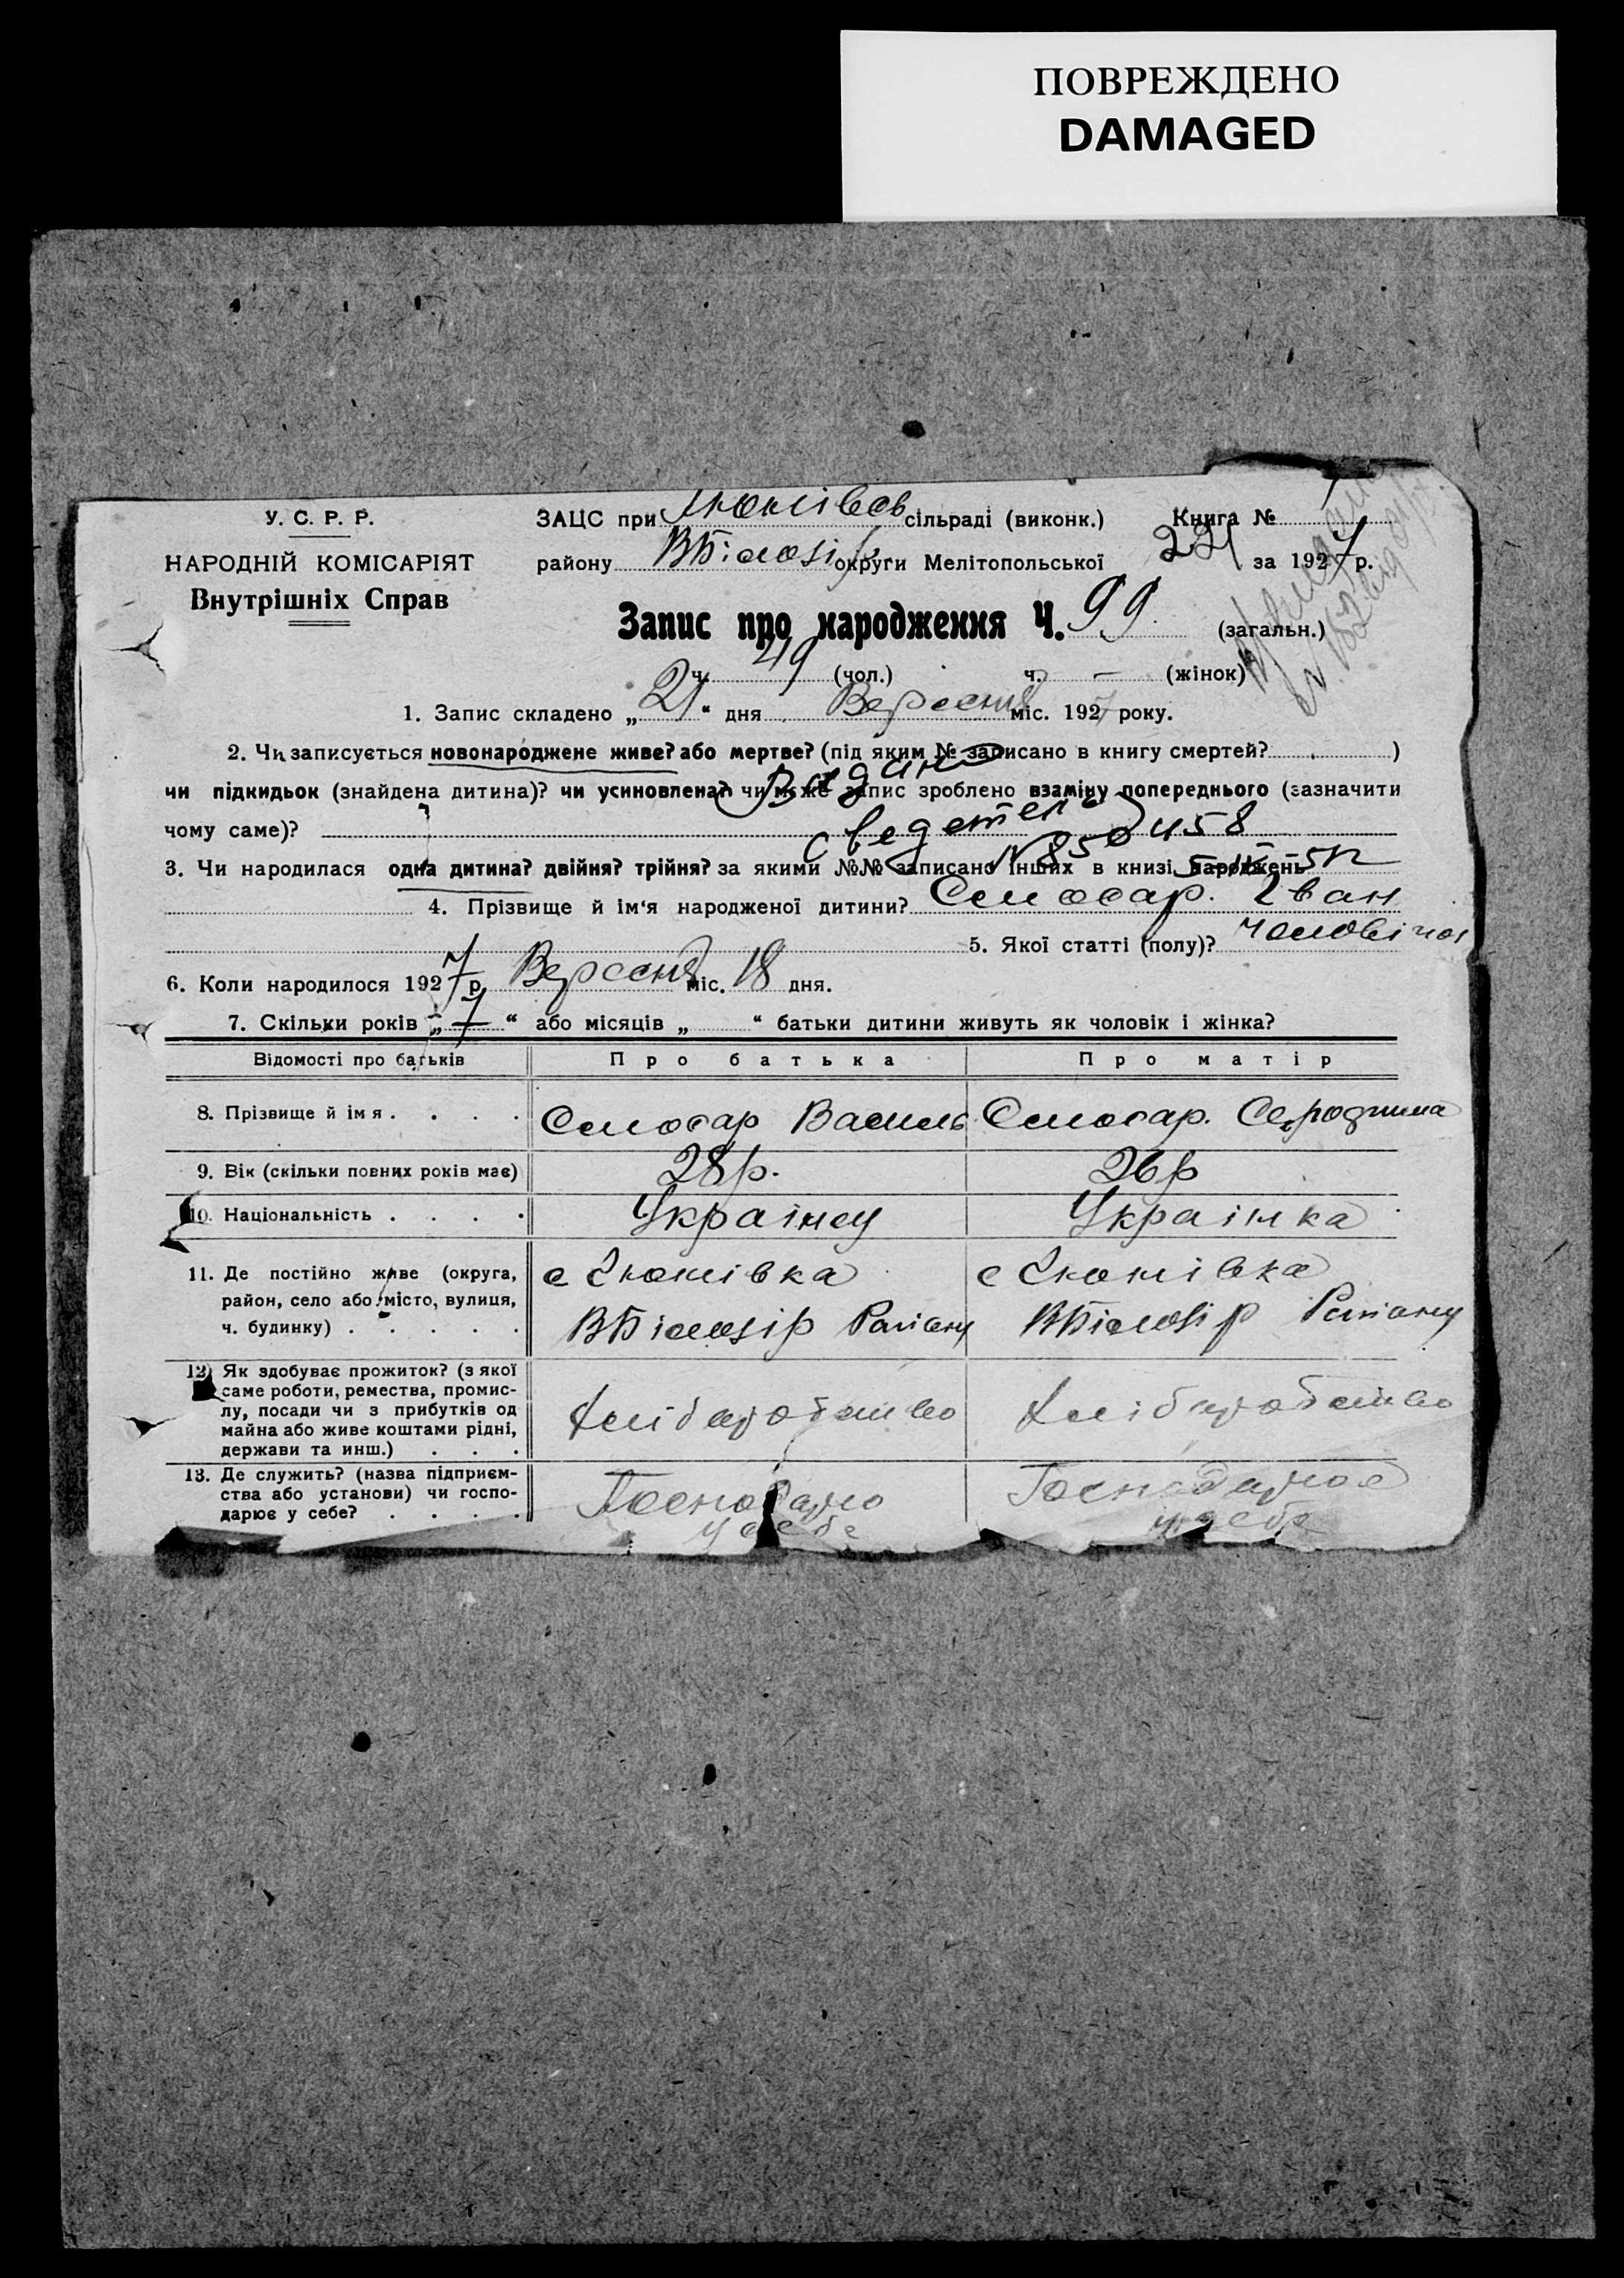 ПОВРЕЖДЕНО
DAMAGED
У. С. Р. Р.
НАРОДНІЙ КОМІСАРІЯТ
Внутрішніх Справ
ЗАЦС при сільраді (виконк.) Книга №
району ВБілозір округи Мелітопольської 221 за 1927 р.
Запис про народження Ч. 99 (загальн.)
ч. 49 (чол.) ч. — (жінок)
1. Запис складено „21“ дня Вересня міс. 1927 року.
2. Чи записується новонароджене живе? або мертве? (під яким № записано в книгу смертей? )
чи підкидьок (знайдена дитина)? чи усиновлена? чи може запис зроблено взаміну попереднього (зазначити
чому саме)?
Видано
3. Чи народилася одна дитина? двійня? трійня? за якими №№ записано інших в книзі народжень
4. Прізвище й ім'я народженої дитини? Слюсар. Іван
5. Якої статті (полу)? чоловічої
6. Коли народилося 1927 р. Вересня міс. 18 дня.
7. Скільки років „7“ або місяців „ “ батьки дитини живуть як чоловік і жінка?
Відомості про батьків Про батька Про матір
8. Прізвище й імя . . . . Слюсар Василь Слюсар.
9. Вік (скільки повних років має) 28 р. 26 р
10. Національність . . . . Українец Українка
11. Де постійно живе (округа,
район, село або місто, вулиця,
ч. будинку) . . . . .
ВБілозір Району ВБілозір Району
12. Як здобуває прожиток? (з якої
саме роботи, ремества, промис-
лу, посади чи з прибутків од
майна або живе коштами рідні,
держави та инш.) . . .
Хліборобство Хліборобство
13. Де служить? (назва підприєм-
ства або установи) чи госпо-
дарює у себе? . . . .
у себе у себе